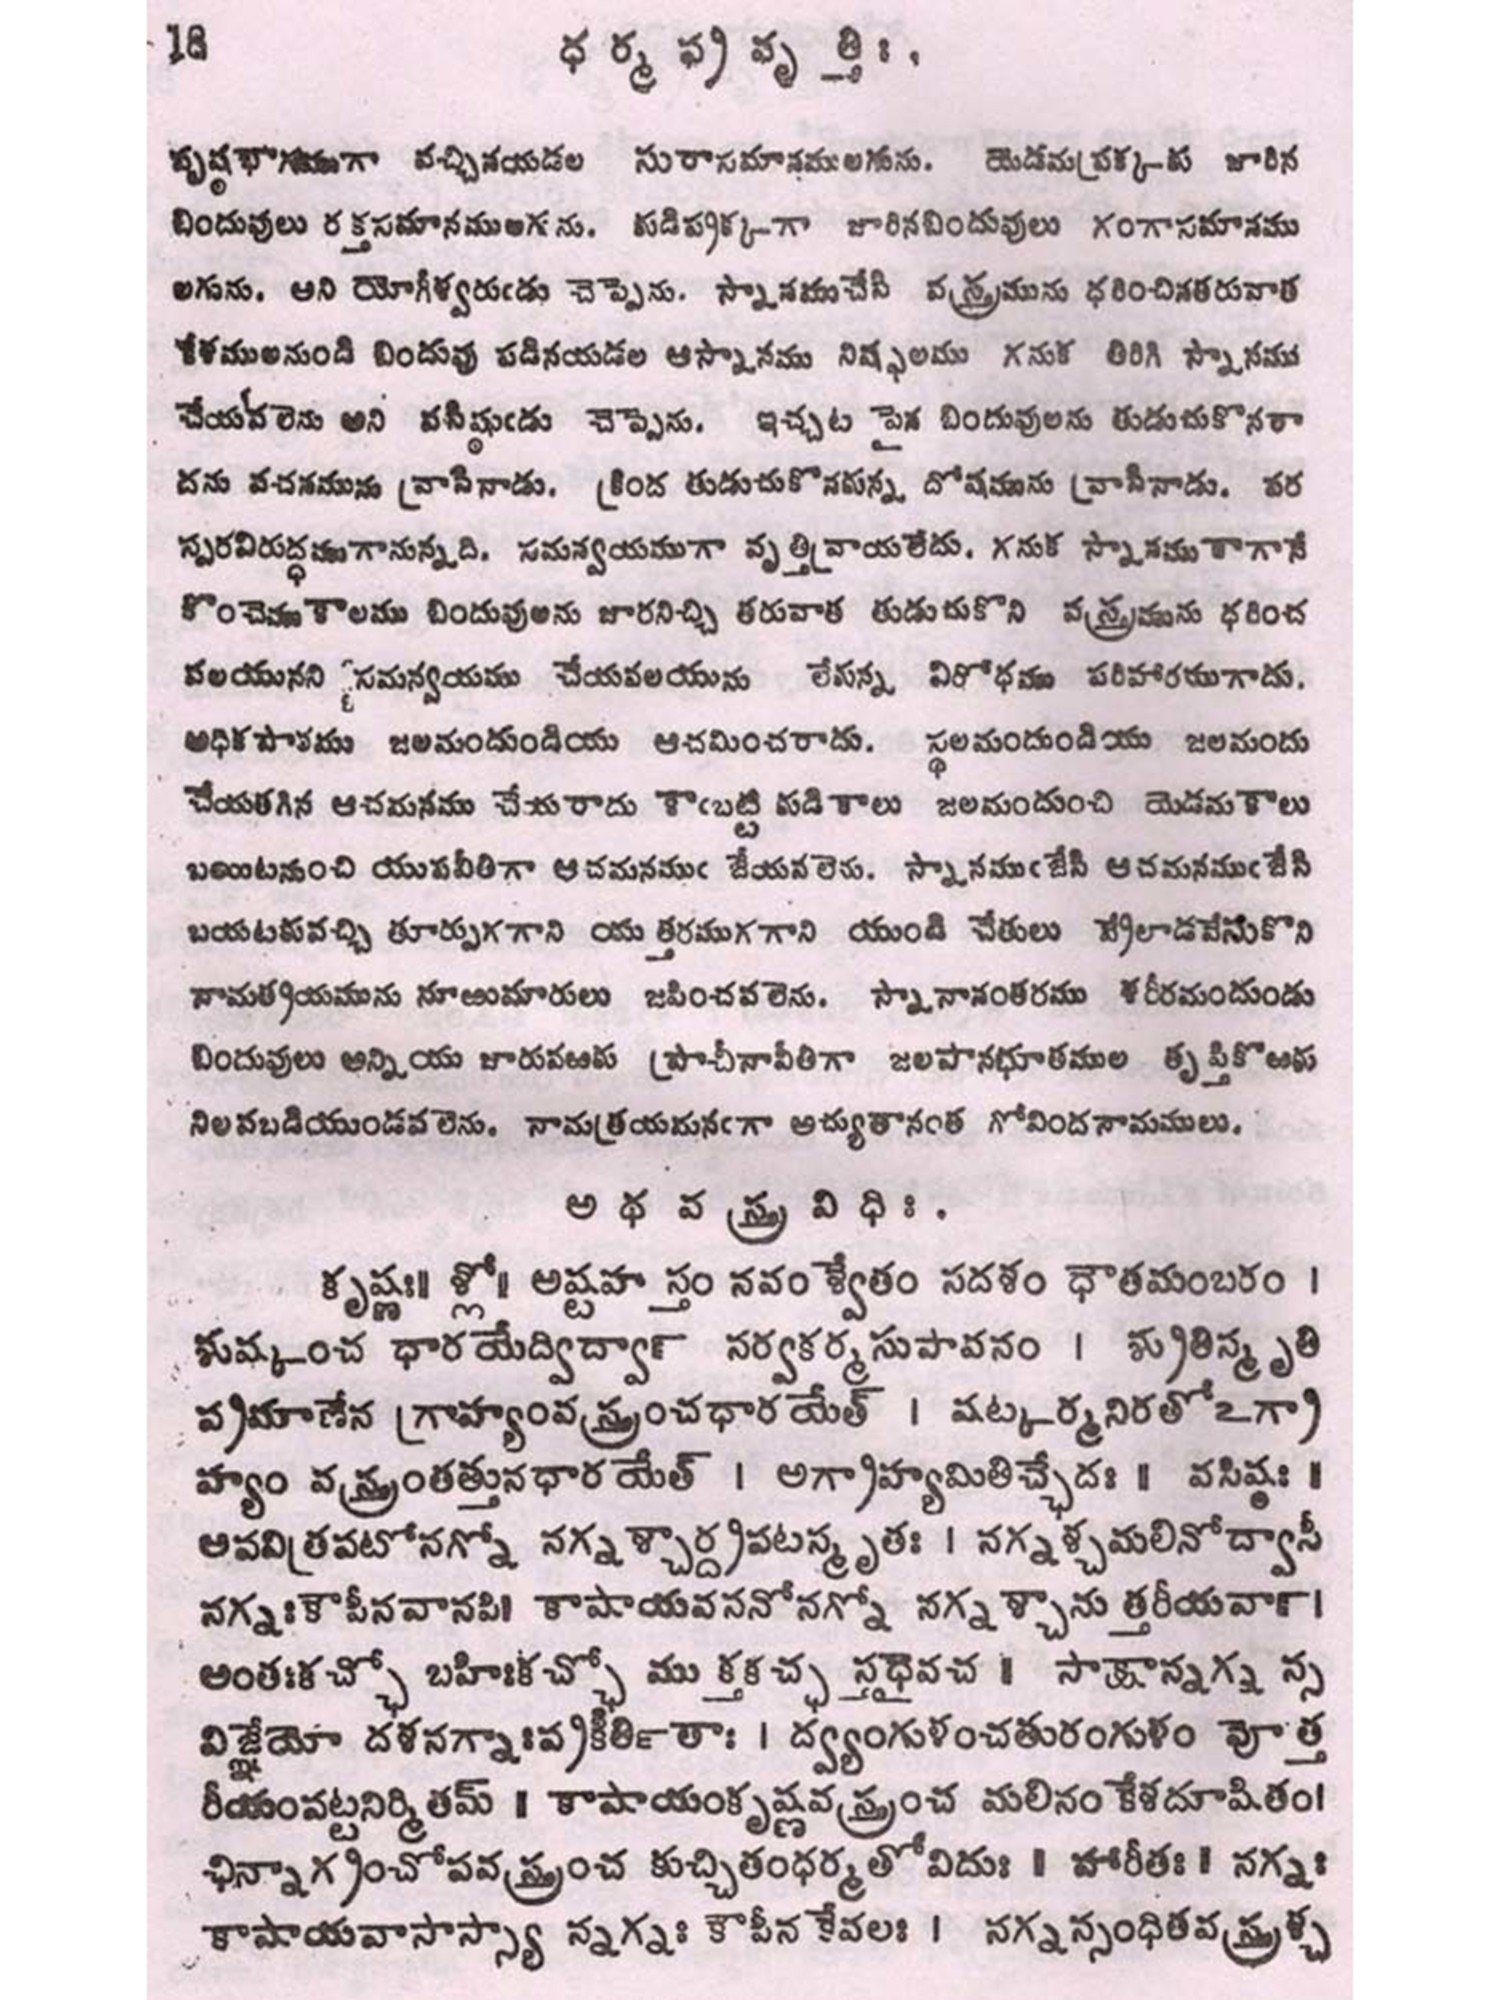 18 ధర్మప్రవృత్తిః.
పృష్ఠభాగముగా వచ్చినయెడల సురాసమానముఅగును. యెడమప్రక్కకు జారిన
బిందువులు రక్తసమానముఅగును. కుడిప్రక్కగా జారినబిందువులు గంగాసమానము
అగును. అని యోగీశ్వరుఁడు చెప్పెను. స్నానముచేసి వస్త్రమును ధరించినతరువాత
కేశములనుండి బిందువు పడినయడల ఆస్నానము నిష్ఫలము గనుక తిరిగి స్నానము
చేయవలెను అని వసిష్ఠుఁడు చెప్పెను. ఇచ్చట పైన బిందువులను తుడుచుకొనరా
దను వచనమును వ్రాసినాడు. క్రింద తుడుచుకొనకున్న దోషమును వ్రాసినాడు. పర
స్పరవిరుద్ధముగానున్నది. సమన్వయముగా వృత్తివ్రాయలేదు. గనుక స్నానముకాగానే
కొంచెముకాలము బిందువులను జారనిచ్చి తరువాత తుడుచుకొని వస్త్రమును ధరించ
వలయునని సమన్వయము చేయవలయును లేకున్న విరోధము పరిహారముగాదు.
అధికపాఠము జలమందుండియు ఆచమించరాదు. స్థలమందుండియు జలమందు
చేయతగిన ఆచమనము చేయరాదు కాఁబట్టి కుడికాలు జలమందుంచి యెడమకాలు
బయిటనుంచి యుపవీతిగా ఆచమనముఁ జేయవలెను. స్నానముఁజేసి ఆచమనముఁజేసి
బయటకువచ్చి తూర్పుగగాని యుత్తరముగగాని యుండి చేతులు వ్రేలాడవేసుకొని
నామత్రయమును నూఱుమారులు జపించవలెను. స్నానానంతరము శరీరమందుండు
బిందువులు అన్నియు జారువఱకు ప్రాచీనావీతిగా జలపానభూతముల తృప్తికొఱకు
నిలవబడియుండవలెను. నామత్రయమనఁగా అచ్యుతానంత గోవిందనామములు.
అథవస్త్రవిధిః.
కృష్ణః॥ శ్లో॥ అష్టహస్తం నవం శ్వేతం సదశం ధౌతమంబరం ।
శుష్కంచ ధారయేద్విద్వా౯ సర్వకర్మసుపావనం । శ్రుతిస్మృతి
ప్రమాణేన గ్రాహ్యంవస్త్రంచధారయేత్ । షట్కర్మనిరతోఽగ్రా
హ్యం వస్త్రంతత్తునధారయేత్ । అగ్రాహ్యమితిచ్ఛేదః ॥ వసిష్ఠః ॥
అపవిత్రపటోనగ్నో నగ్నశ్చార్ద్రపటస్మృతః । నగ్నశ్చమలినోద్వాసీ
నగ్నఃకౌపీనవానపి॥ కాషాయవసనోనగ్నో నగ్నశ్చానుత్తరీయవా౯।
అంతఃకచ్ఛో బహిఃకచ్ఛో ముక్తకచ్ఛ స్తథైవచ ॥ సాక్షాన్నగ్న స్స
విజ్ఞేయో దశనగ్నాఃప్రకీర్తితాః । ద్వ్యంగుళంచతురంగుళం వోత్త
రీయంపట్టనిర్మితమ్ ॥ కాషాయంకృష్ణవస్త్రంచ మలినం కేశదూషితం।
ఛిన్నాగ్రంచోపవస్త్రంచ కుచ్చితంధర్మతోవిదుః ॥ హారీతః॥ నగ్నః
కాషాయవాసాస్స్యా న్నగ్నః కౌపీన కేవలః । నగ్నస్సంధితవస్త్రశ్చ